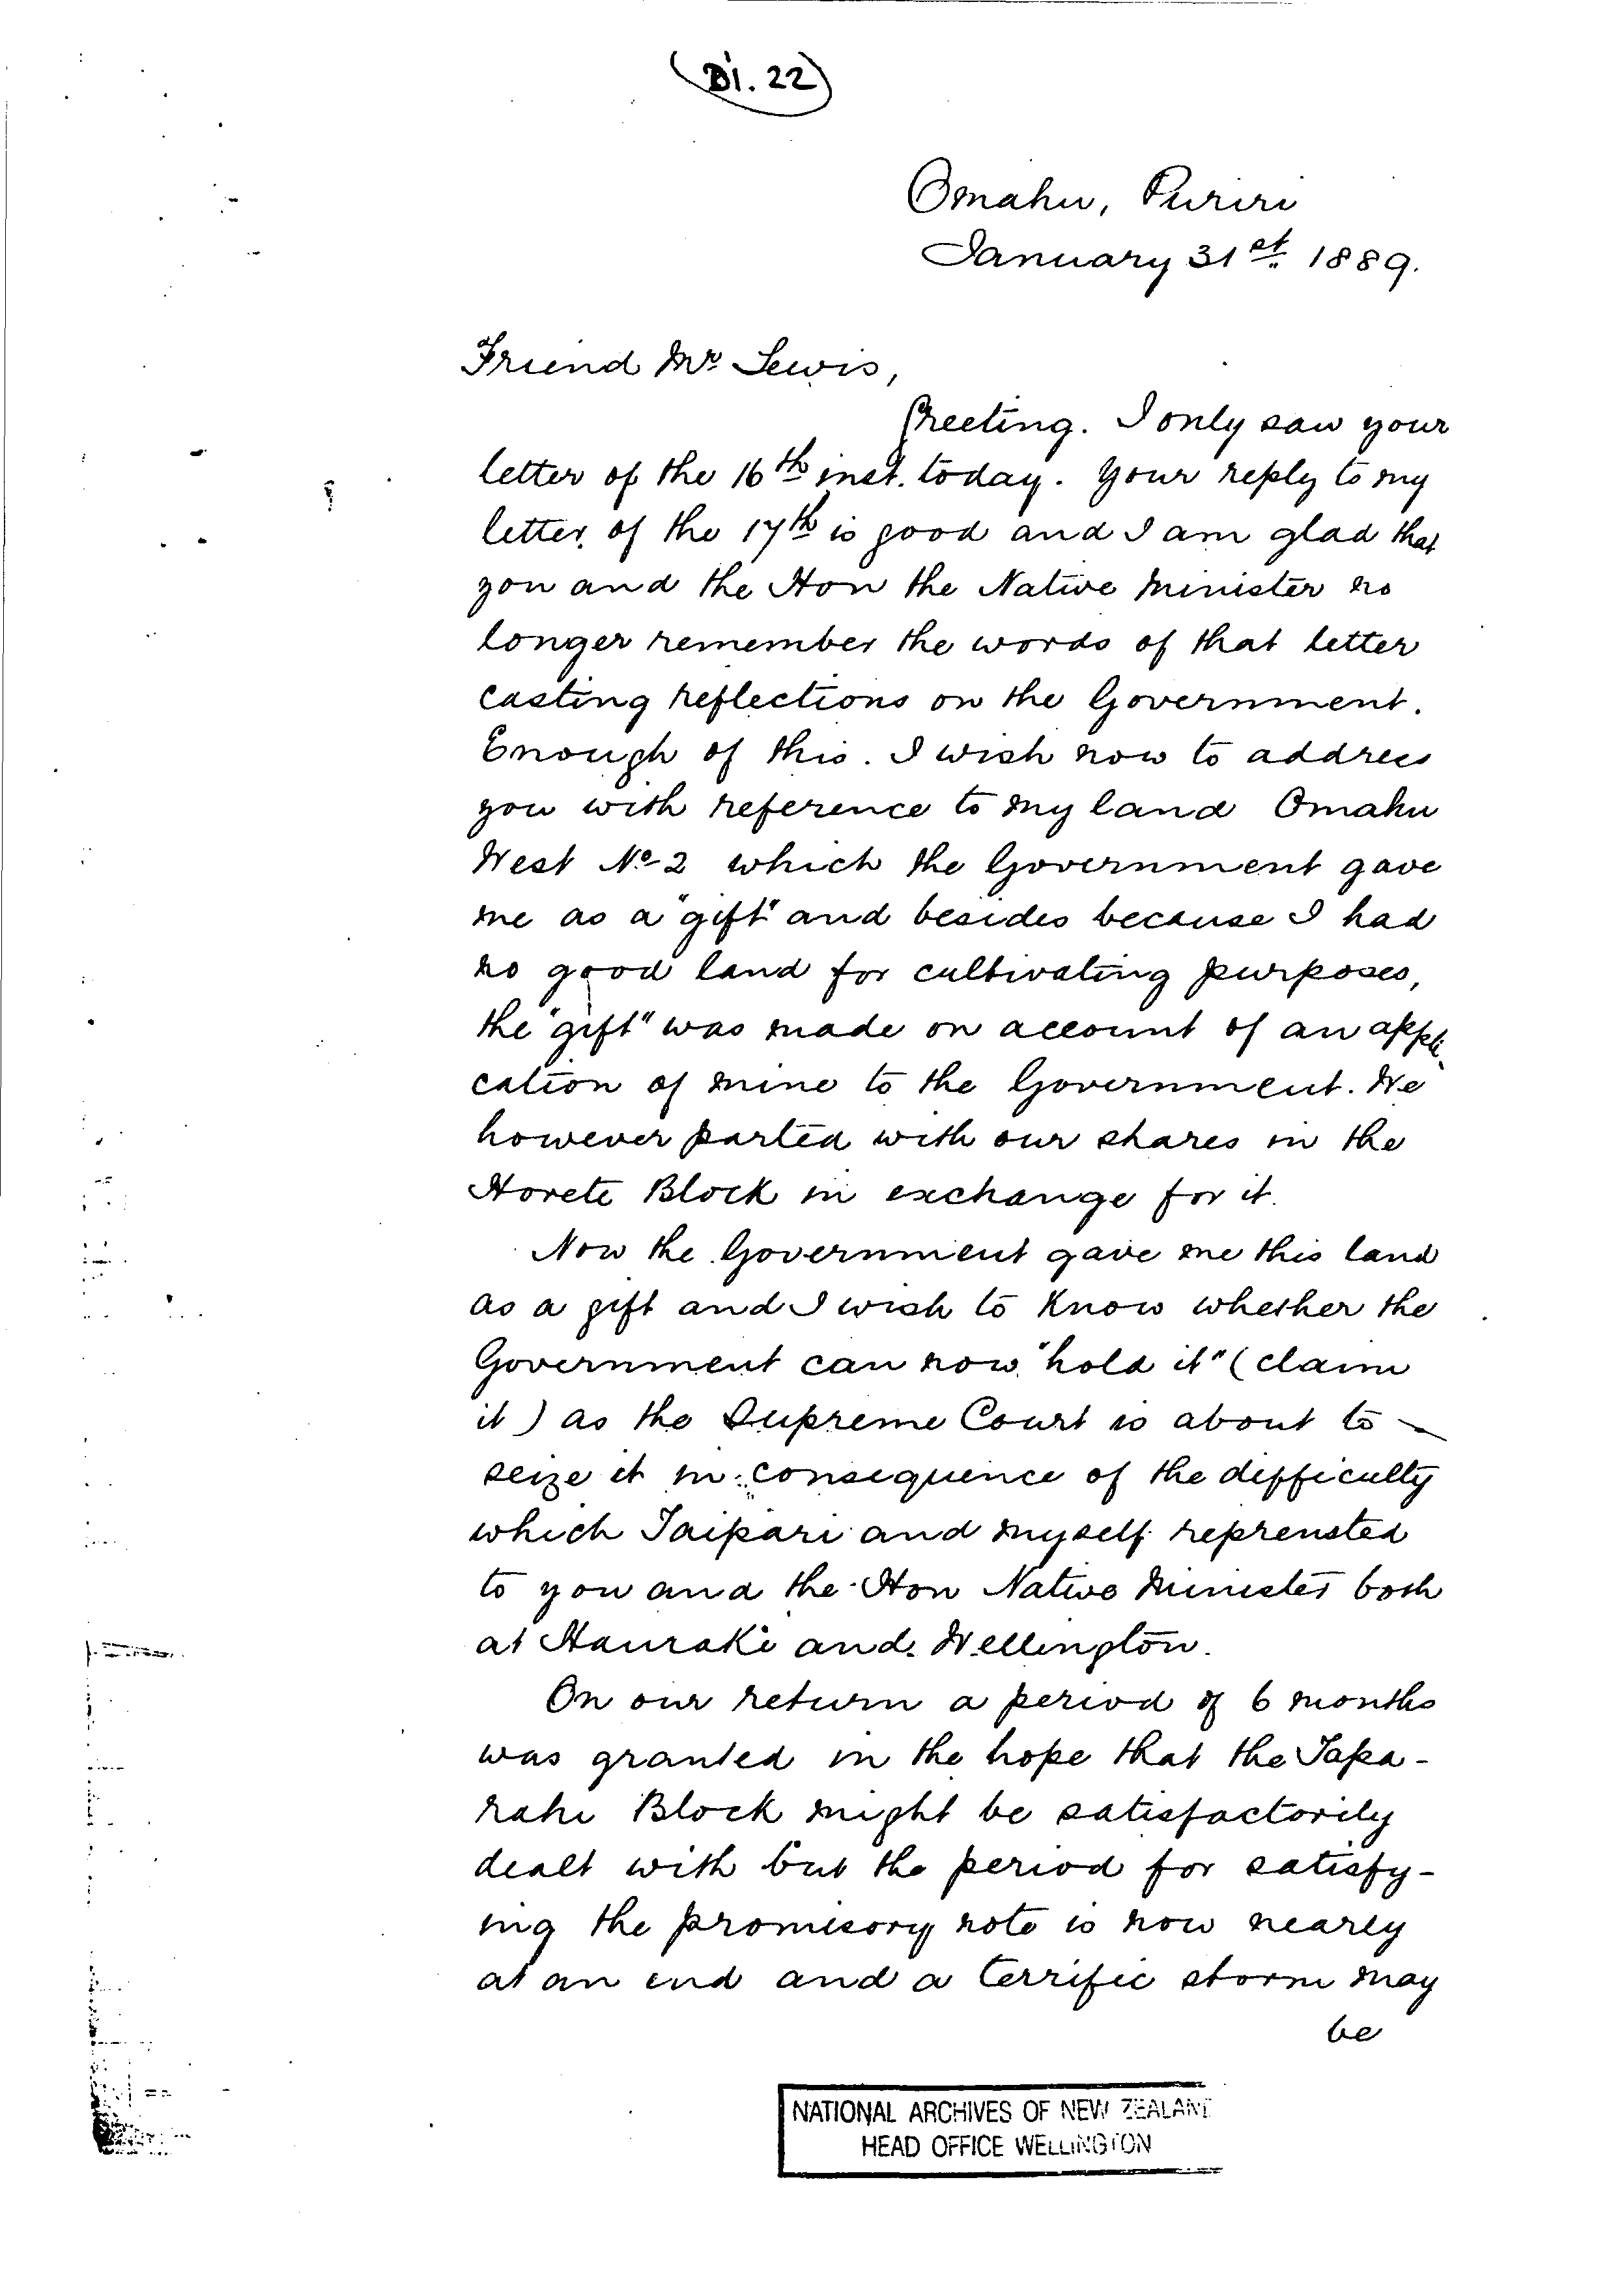 (Di. 22)
Omahu, Puriri
January 31st. 1889.
Friend Mr Lewis,
Greeting. I only saw your
letter of the 16th inst. today. Your reply to my
letter of the 17th is good and I am glad that
you and the Hon the Native Minister no
longer remember the words of that letter
casting reflections on the Government.
Enough of this. I wish now to address
you with reference to my land Omahu
West No 2 which the Government gave
me as a "gift" and besides because I had
no good land for cultivating purposes,
the "gift" was made on account of an appli-
cation of mine to the Government. We
however parted with our shares in the
Horete Block in exchange for it.
Now the Government gave me this land
as a gift and I wish to know whether the
Government can now "hold it" (claim
it) as the Supreme Court is about to
seize it in consequence of the difficulty
which Taipari and myself reprensted
to you and the Hon Native Minister both
at Hauraki and Wellington.
On our return a period of 6 months
was granted in the hope that the Tapa-
rahi Block might be satisfactorily
dealt with but the period for satisfy-
ing the promisory note is now nearly
at an end and a terrific storm may
be
NATIONAL ARCHIVES OF NEW ZEALAND
HEAD OFFICE WELLINGTON